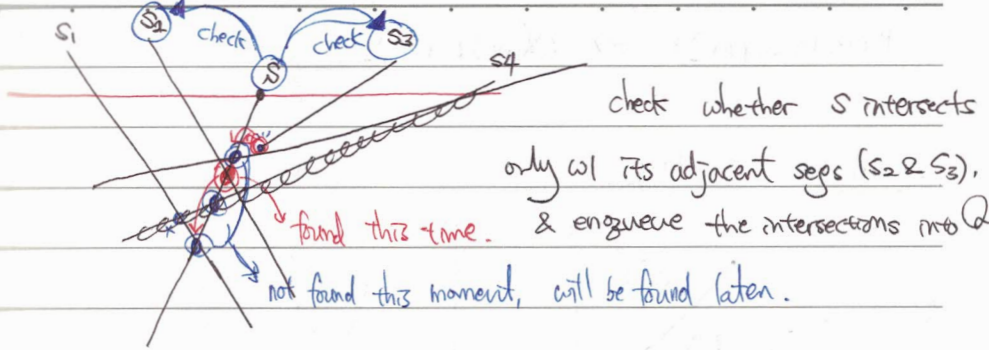 S2
check
check
S3
S1
S
S4
check whether S intersects
only w/ its adjacent segs (S2 & S3),
& enqueue the intersections into Q
found this time.
not found this moment, will be found later.